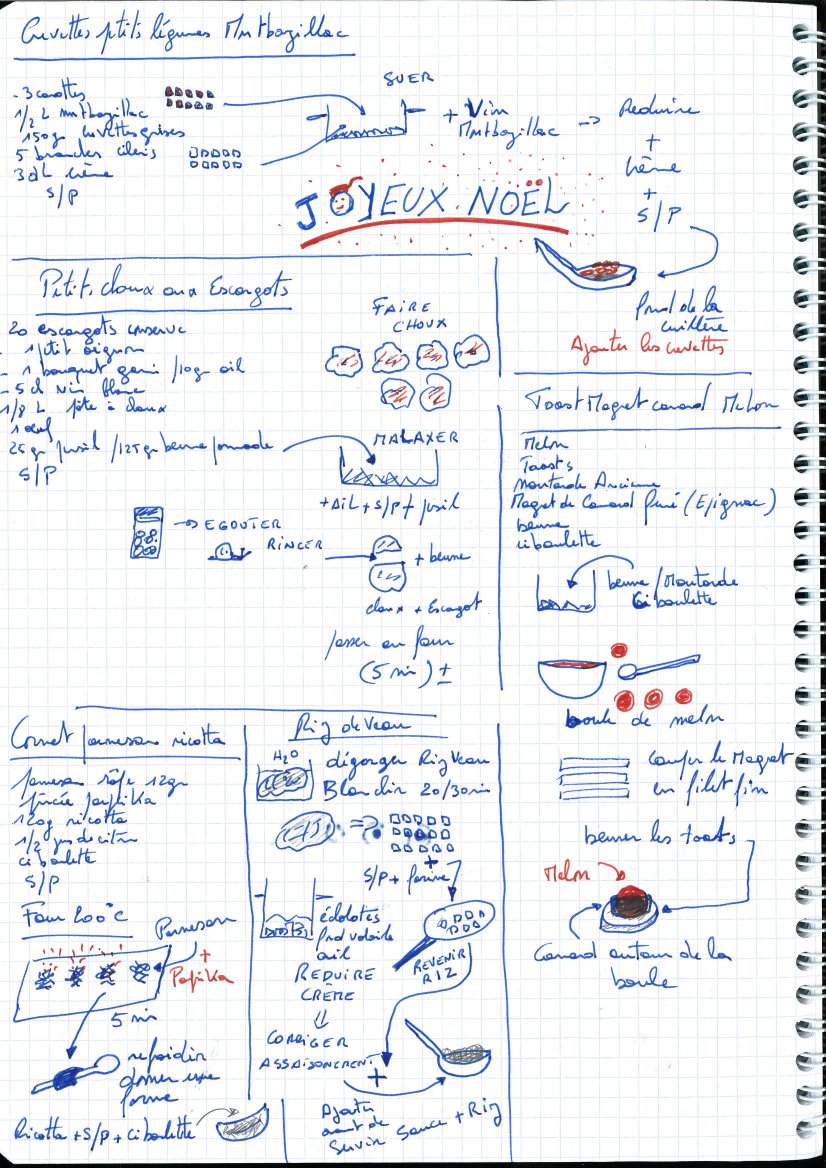 Crevettes ptits légumes Montbazillac
- 3 carottes
1/2 L montbazillac
150gr crevettes grises
5 branches céleris
3 dL crème
S/P
SUER
+ Vin
Montbazillac
Reduire
+
Crème
+
S/P
JOYEUX NOËL
fond de la
cuillère
Ajouter les crevettes
Petits choux aux Escargots
20 escargots conserve
- 1 ptit oignon
- 1 bouquet garni / 10gr ail
- 5 cl vin blanc
1/8 L pâte à choux
1 œuf
25 gr persil / 125gr beurre pommade
S/P
FAIRE
CHOUX
MALAXER
+ AIL + S/P + persil
EGOUTER
RINCER
+ beurre
choux + Escargot
passer au four
(5 min) ±
Toast Magret canard Melon
Melon
Toasts
moutarde Ancienne
Magret de Canard fumé (Epignac)
beurre
ciboulette
beurre / Moutarde
Ciboulette
boule de melon
couper le Magret
en filet fin
beurrer les toasts
Melon
Canard autour de la
boule
Cornet parmesan ricotta
parmesan râpé 12gr
pincée paprika
120g ricotta
1/2 jus de citron
ciboulette
S/P
Four 200°C
Parmesan
+
Paprika
5 min
refroidir
donner une
forme
Ricotta + S/P + Ciboulette
Riz de Veau
H2O
dégorger Riz Veau
Blanchir 20/30 min
=>
+
S/P + farine
échalotes
fond volaille
ail
REVENIR
RIZ
REDUIRE
CRÈME
CORRIGER
ASSAISONEMENT
+
Ajouter
avant de
servir
Sauce + Riz